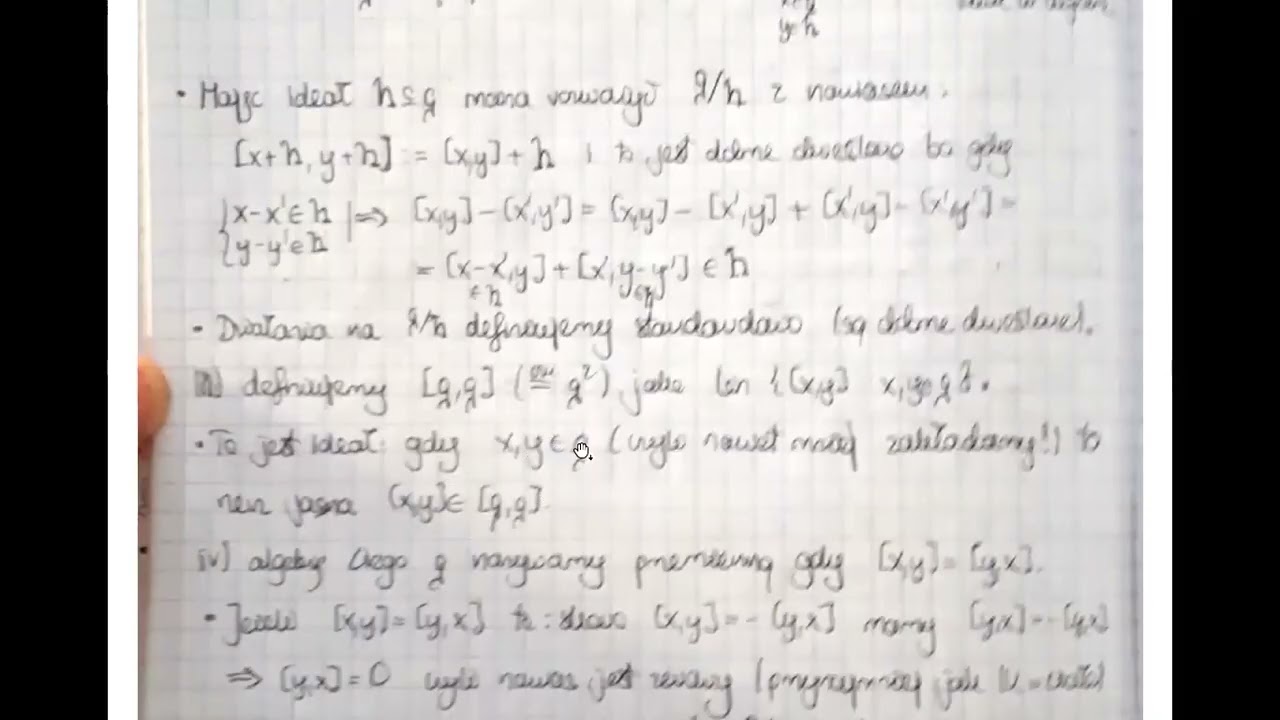 y=h
• Mając ideał h ≤ g można rozważyć g/h z nawiasem.
[x+h, y+h] := [x,y] + h i to jest dobrze określone bo gdy
{x-x'∈h | ⇒ [x,y] - [x',y'] = [x,y] - [x',y] + [x',y] - [x',y'] =
{y-y'∈h
= [x-x',y] + [x',y-y'] ∈ h
∈h ∈h
• Działania na g/h definiujemy standardowo (są dobrze określone).
definiujemy [g,g] (≅ g²) jako lin {[x,y] x,y∈g}.
• To jest ideał: gdy x,y∈g (czyli nawet mniej zakładamy!) to
jasna [x,y]∈[g,g].
iv) algebrę Liego g nazywamy przemienną gdy [x,y] = [y,x].
• Jeżeli [x,y] = [y,x] to: skoro [x,y] = -[y,x] mamy [y,x] = -[y,x]
⇒ [y,x] = 0 czyli nawias jest zerowy (przynajmniej jak